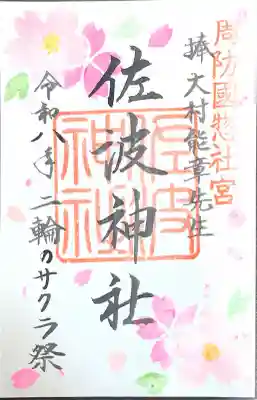 周防國惣社宮
捧大村能章先生
佐波神社
佐波
神社
令和八年二輪のサクラ祭